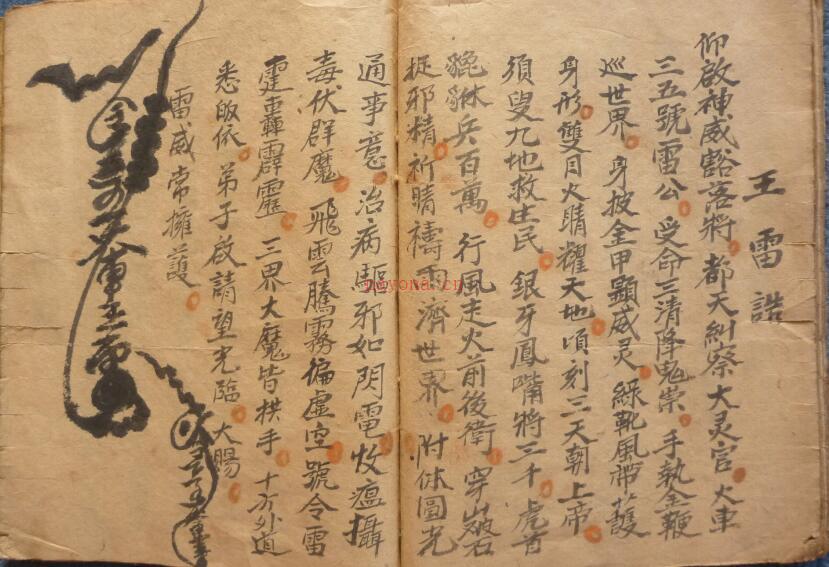 王雷誥
仰啟神威豁落將都天糾察大灵官火車
三五號雷公受命三清降鬼祟手执金鞭
巡世界身披金甲顯威灵綠靴風帶護
身形雙目火睛耀天地頃刻三天朝上帝
須臾九地救生民銀牙鳳嘴將三千虎首
貔貅兵百萬行風走火前後衛穿山破石
捉邪精祈晴禱雨濟世界附体圓光
通事意治病驅邪如閃電收瘟攝
毒伏群魔飛雲騰霧徧虚空號令雷
霆轟霹靂三界大魔皆拱手十方外道
悉皈依弟子啟請望光臨大賜
雷威常擁護
noyona.cn